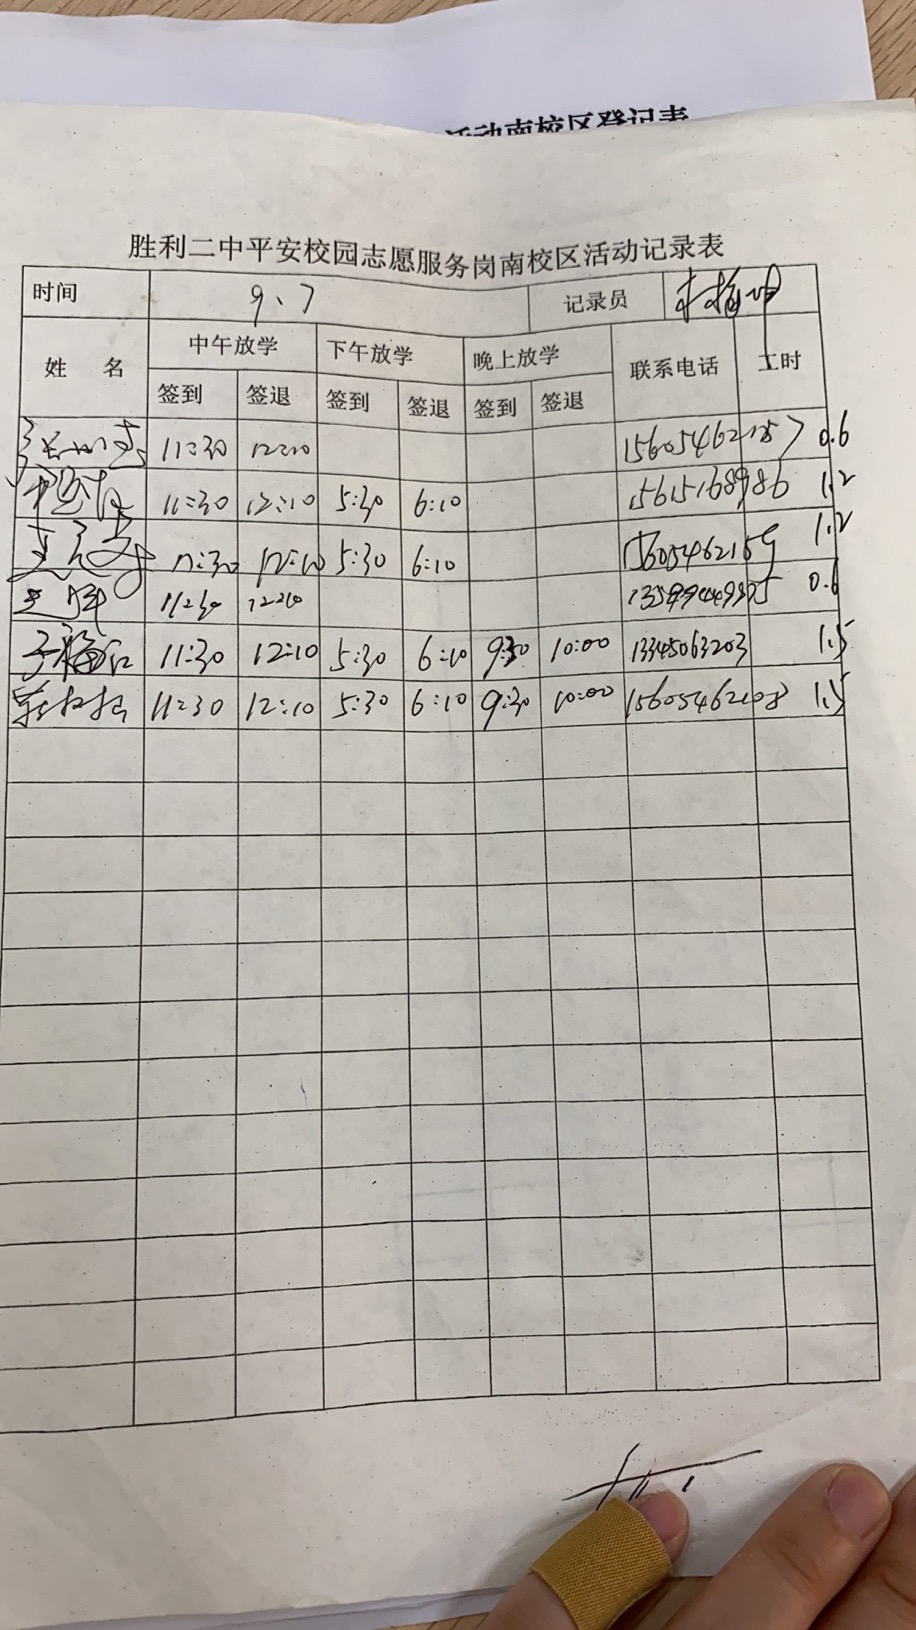 活动南校区登记表
胜利二中平安校园志愿服务岗南校区活动记录表
时间 9、7 记录员
姓 名 中午放学 下午放学 晚上放学 联系电话 工时
签到 签退 签到 签退 签到 签退
11:30 12:10 0.6
11:30 12:10 5:30 6:10 15615168986 1.2
11:30 12:10 5:30 6:10 15605462159 1.2
11:30 0.6
11:30 12:10 5:30 6:10 9:30 10:00 13345063203 1.5
11:30 12:10 5:30 6:10 9:30 10:00 15605462108 1.5